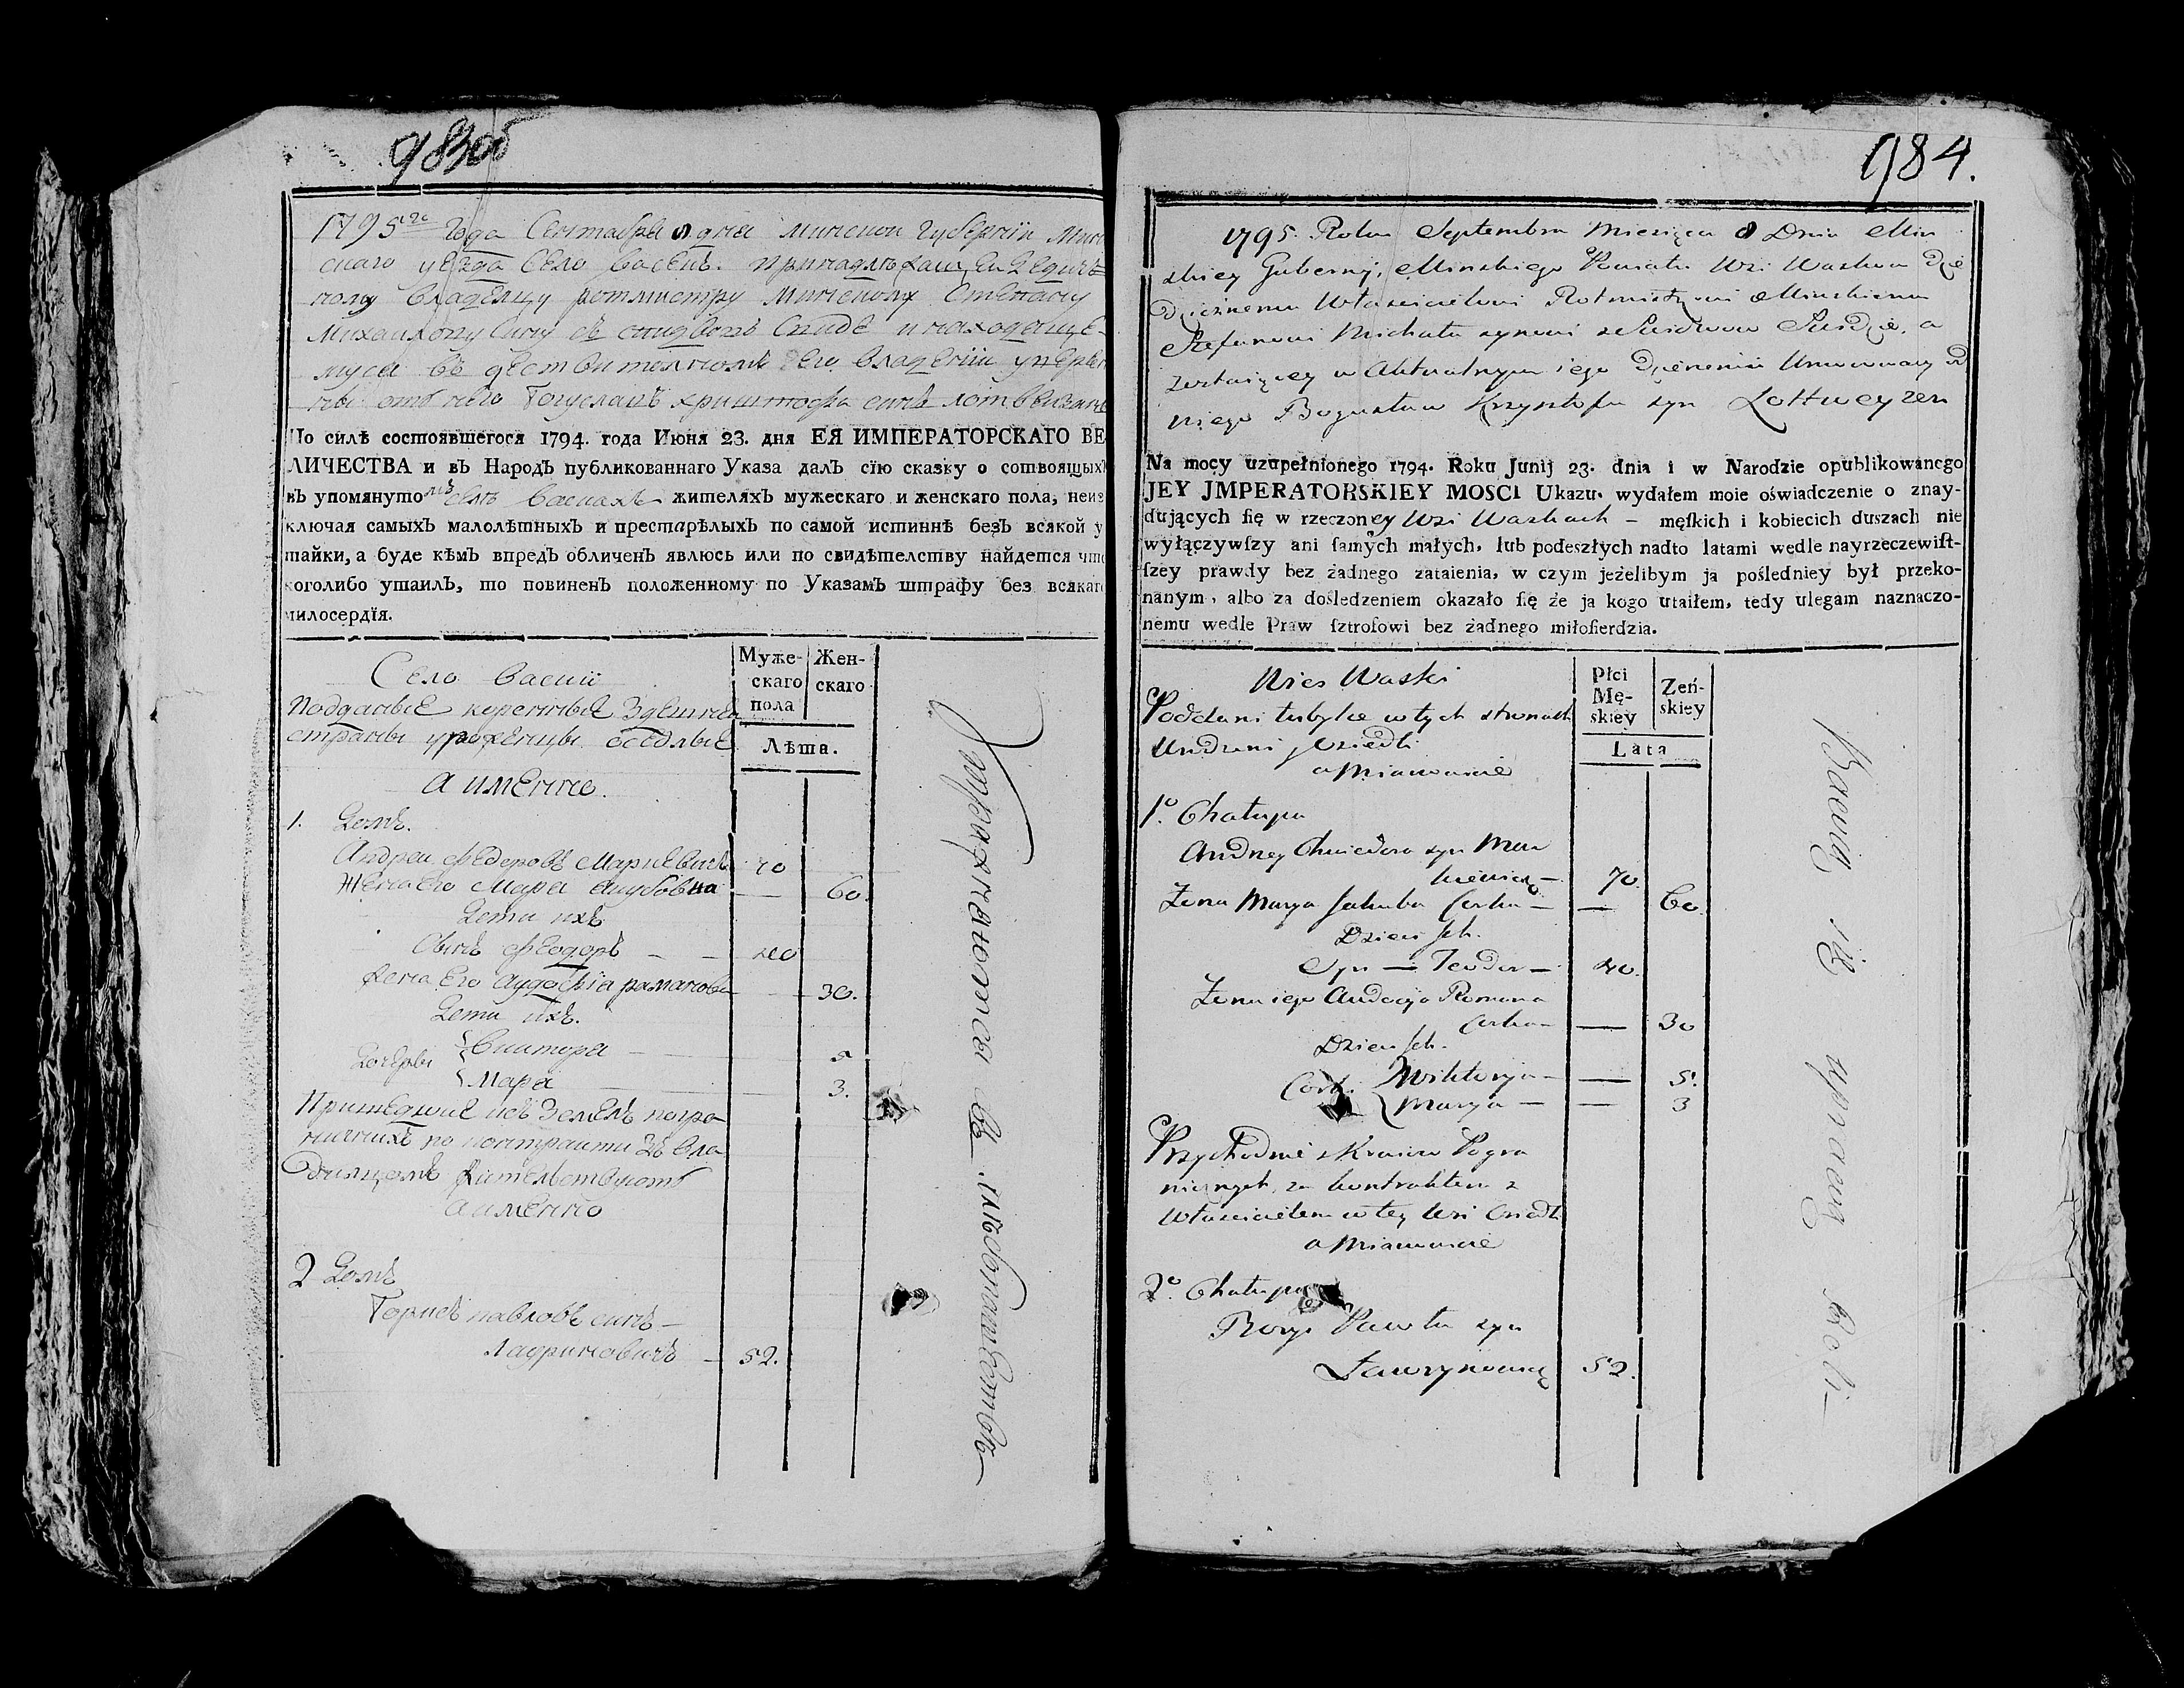 983об
1795го Года Сентабра 8 дня минской губернїи мин
скаго уезда село васекъ. принадлежащ, ей дедичъ
ному владелцу ротмистру минскому Степану
михаилову сину
муся въ действителномъ его владенїи уперек
ны отъ него Богуславъ криштофа синъ
По силѣ состоявшегося 1794. года Июня 23. дня ЕЯ ИМПЕРАТОРСКАГО ВЕ
ЛИЧЕСТВА и въ Народъ публикованнаго Указа далъ сїю сказку о сотвоящыхъ
въ упомянутомъ селѣ васкахъ жителяхъ мужескаго и женскаго пола, неиз
ключая самыхъ малолѣтныхъ и престарѣлыхъ по самой истиннѣ безъ всякой у
тайки, а буде кѣмъ впредъ обличенъ явлюсь или по свидѣтелству найдется что
коголибо утаилъ, то повиненъ положенному по Указамъ штрафу без всякаго
милосердїя.
Село васкии
Муже-
скаго
пола
Жен-
скаго
Лѣта.
Подданые коренные здешнея
страны уроженцы оседлые
а именно.
1. Домъ.
Андреи Федоровъ Маркевичъ 70
Жена его Мара Якубовна — 60.
Дети ихъ
Сынъ Феодоръ — — 40
Жена его Аудосїа раманова — 30.
Дети ихъ.
Дочеры Виктора — 5
Мара 3.
Пришедшие изъ земель погра
ничнихъ по контракти зъ вла
дилцомъ жителствуютъ
а именно
2 Домъ
Борисъ павловъ синъ —
Лауриновичъ — 52.
984.
1795. Roku Septembra Miesiąca 8 Dnia Min
skiey Guberny, Minskiego Powiatu Wsi Waskow Dzie
dzicznemu Włascicielowi Rotmistrzowi Minskiemu
Stefanowi Michała synowi
zostaiącey w Aktualnym iego Dzierzeniu Umocowany od
niego Bogusław Krzysztofa syn Lottweyzen
Na mocy uzupełnionego 1794. Roku Junij 23. dnia i w Narodzie opublikowanego
JEY JMPERATORSKIEY MOSCI Ukazu. wydałem moie oświadczenie o znay-
dujących ſię w rzeczoney Wsi Waskach — męſkich i kobiecich duszach nie
wyłączywſzy ani ſamych małych, lub podeszłych nadto latami wedle nayrzeczewiſt-
ſzey prawdy bez żadnego zataienia, w czym jeżelibym ja pośledniey był przeko-
nanym, albo za dośledzeniem okazało ſię że ja kogo utaiłem, tedy ulegam naznaczo-
nemu wedle Praw ſztrofowi bez żadnego miłoſierdzia.
Wies Waski
Płci
Mę-
skiey
Zeń-
skiey
Lata
Poddani tubylce w tych stronach
Urodzeni y Osiedli
a Mianowicie
1o. Chałupa
Andrzey Chwiedora syn Mar
kiewicz — 70.
Zona Marya Jakuba Corka — — 60.
Dzieci Jch.
Syn — Teodor — 40.
Zona iego Audocya Romana
Corka — — 30
Dzieci Jch.
Cork. Wiktorya — — 5.
Marya — — 3
Przychodnie z Kraiow Pogra
nicznych, za kontraktem z
Włascicielem w tey Wsi Osiedli
a Mianowicie
2o. Chałupa
Borys Pawła syn
Ławrynowicz 52.